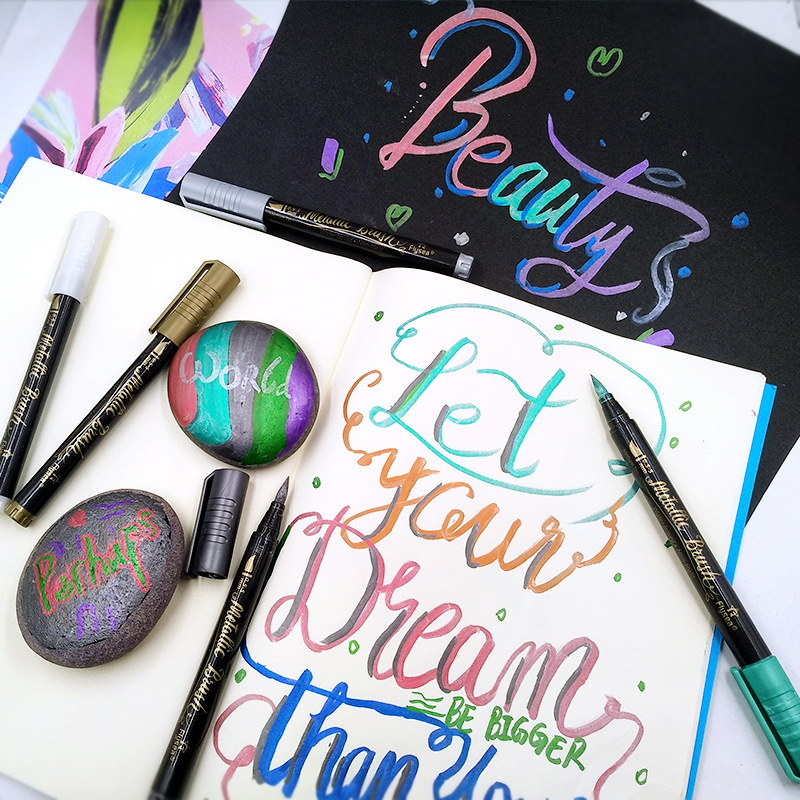 Beauty
Metallic Brush
Flysea
Metallic Brush
Metallic Brush
Flysea
WORLD
Let
your
Dream
BE BIGGER
than You
Metallic Brush
Flysea
Perhaps
Metallic Brush
Flysea